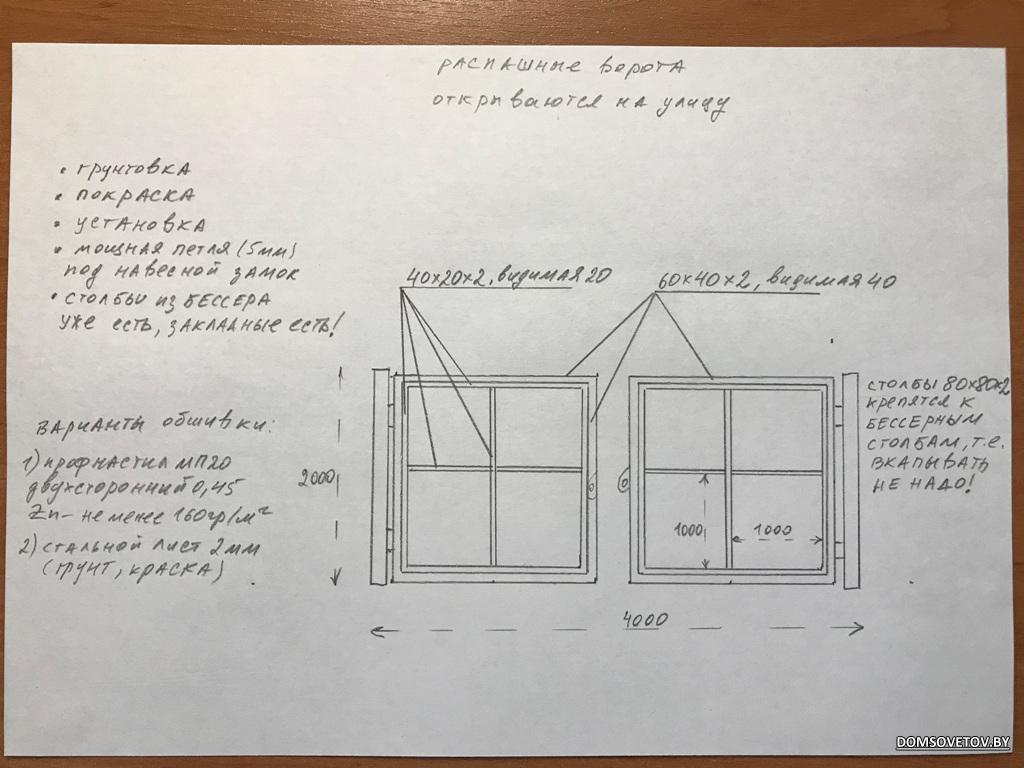 РАСПАШНЫЕ ВОРОТА
ОТКРЫВАЮТСЯ НА УЛИЦУ
• ГРУНТОВКА
• ПОКРАСКА
• УСТАНОВКА
• МОЩНАЯ ПЕТЛЯ (5мм)
ПОД НАВЕСНОЙ ЗАМОК
• СТОЛБЫ ИЗ БЕССЕРА
УЖЕ ЕСТЬ, ЗАКЛАДНЫЕ ЕСТЬ!
40х20х2, видимая 20
60х40х2, видимая 40
ВАРИАНТЫ ОБШИВКИ:
1) ПРОФНАСТИЛ МП20
ДВУХСТОРОННИЙ 0,45
Zn - не менее 160гр/м²
2) СТАЛЬНОЙ ЛИСТ 2мм
(ГРУНТ, КРАСКА)
2000
1000
1000
4000
СТОЛБЫ 80х80х2
КРЕПЯТСЯ К
БЕССЕРНЫМ
СТОЛБАМ, Т.Е.
ВКАПЫВАТЬ
НЕ НАДО!
DOMSOVETOV.BY